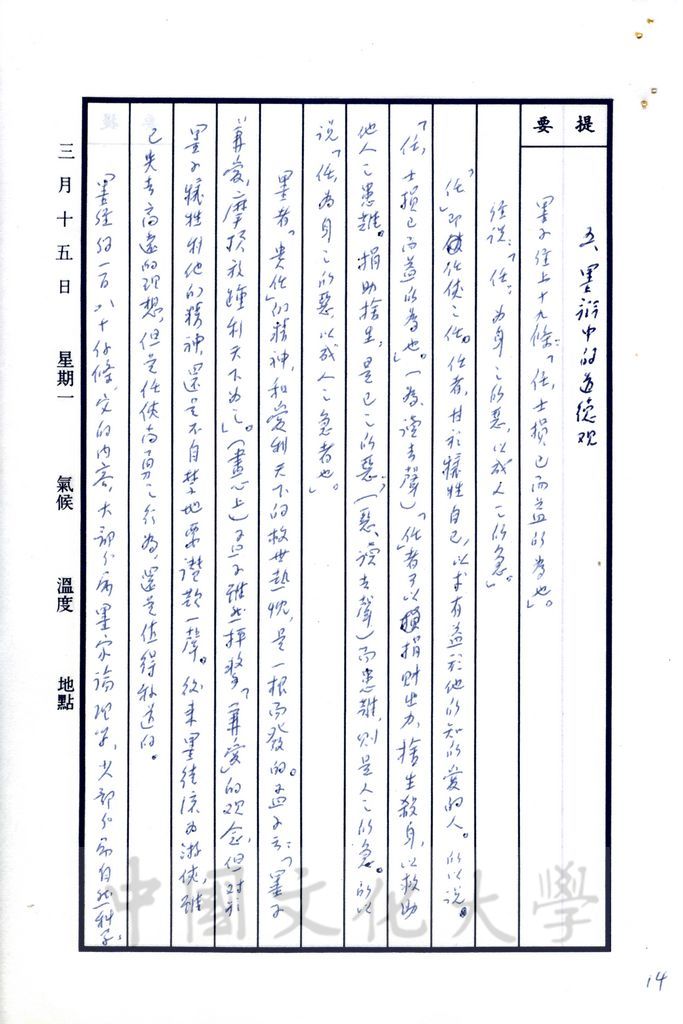 提要
五、墨辯中的道德观
墨子经上十九條：「任，士損己而益所為也」。
经说：「任：為身之所惡，以成人之所急」。
「任」即任俠之任。任者，甘於犧牲自己，以求有益於他所知所愛的人。所以说。
「任，士損己而益所為也」。（為，读去聲）「任」者可以捐財出力，捨生殺身，以救助
他人之患難。捐助捨生，是己之所惡；（惡，读去聲）而患難，則是人之所急。所以
说「任，為身之所惡，以成人之急者也」。
墨者「贵任」的精神，和爱利天下的救世热忱，是一根而發的。孟子云：「墨子
兼爱，摩顶放踵利天下為之」。（盡心上）孟子雖然抨擊「兼爱」的观念，但对於
墨子犧牲利他的精神，還是不自禁地要讚歎一聲。後來墨徒流为游俠，雖
已失去高遠的理想，但是任俠尚勇之行為，還是值得称道的。
「墨经约一百八十仟條，它的内容，大部分為墨家論理学，少部分為自然科学，
三月十五日 星期一 氣候 溫度 地點
中國文化大學
14